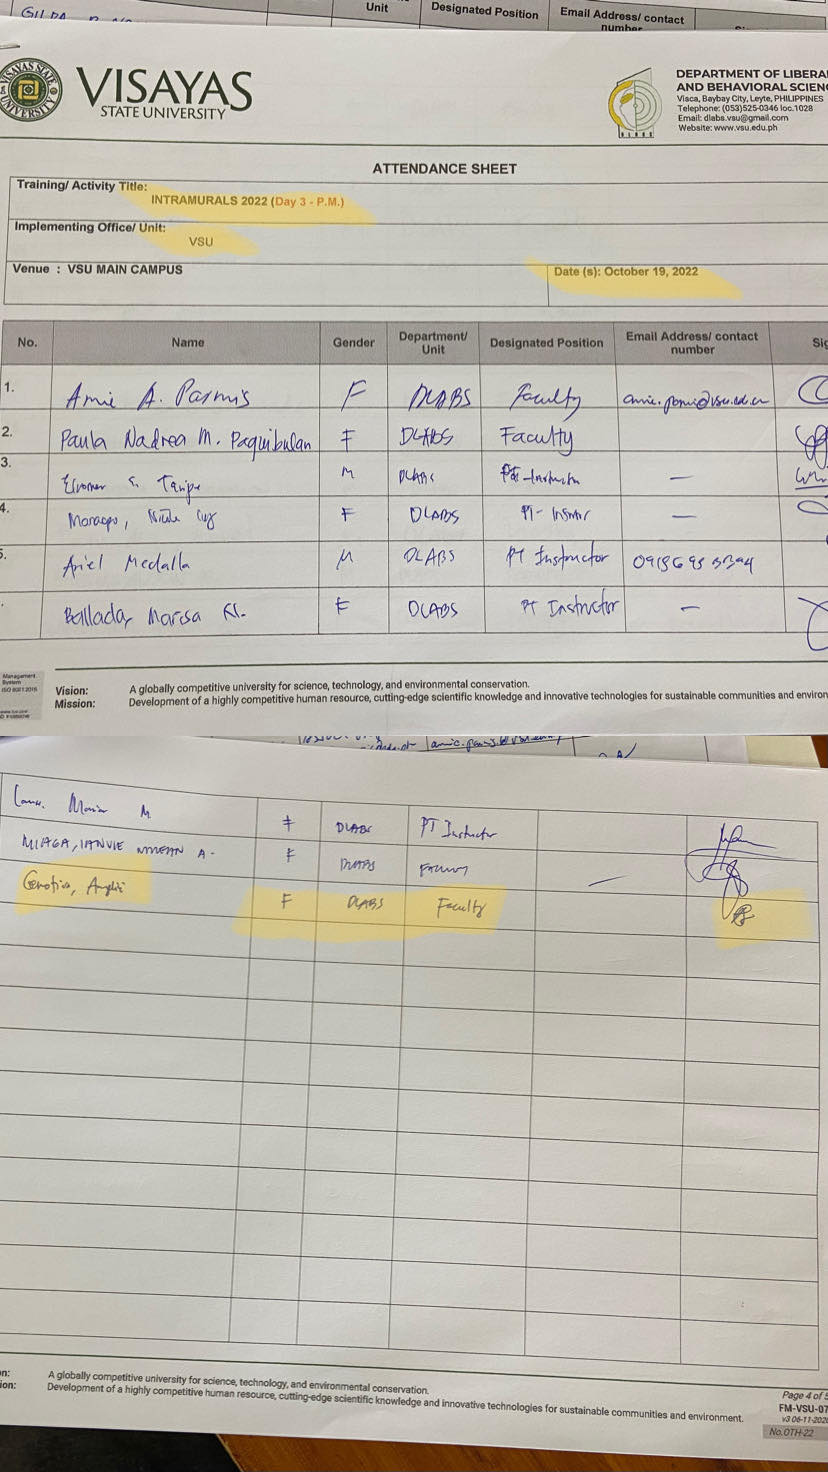 Unit Designated Position Email Address/ contact
number
VISAYAS STATE UNIVERSITY
VISAYAS
STATE UNIVERSITY
DEPARTMENT OF LIBERA
AND BEHAVIORAL SCIEN
Visca, Baybay City, Leyte, PHILIPPINES
Telephone: (053)525-0346 loc.1028
Email: dlabs.vsu@gmail.com
Website: www.vsu.edu.ph
ATTENDANCE SHEET
Training/ Activity Title:
INTRAMURALS 2022 (Day 3 - P.M.)
Implementing Office/ Unit:
VSU
Venue : VSU MAIN CAMPUS Date (s): October 19, 2022
No. Name Gender Department/ Unit Designated Position Email Address/ contact number Sig
1. Amie A. Parmis F DLABS Faculty
2. Paula Nadrea M. Paquibulan F DLABS Faculty
3. M DLABS PT-Instructor —
4. F DLABS —
5. Ariel Medalla M DLABS PT Instructor
Ballada, Marisa F DLABS PT Instructor —
Management
System
ISO 9001:2015
Vision: A globally competitive university for science, technology, and environmental conservation.
Mission: Development of a highly competitive human resource, cutting-edge scientific knowledge and innovative technologies for sustainable communities and environ
M. F DLABS PT Instructor
MIAGA, F DLABS —
F DLABS Faculty
on: A globally competitive university for science, technology, and environmental conservation.
ion: Development of a highly competitive human resource, cutting-edge scientific knowledge and innovative technologies for sustainable communities and environment.
Page 4 of 5
FM-VSU-07
v3 06-11-2020
No.OTH-22